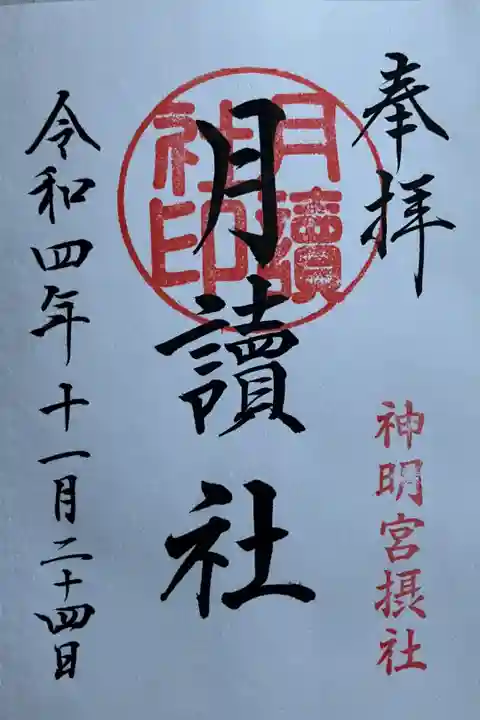 奉拝
神明宮摂社
月讀社印
月讀社
令和四年十一月二十四日